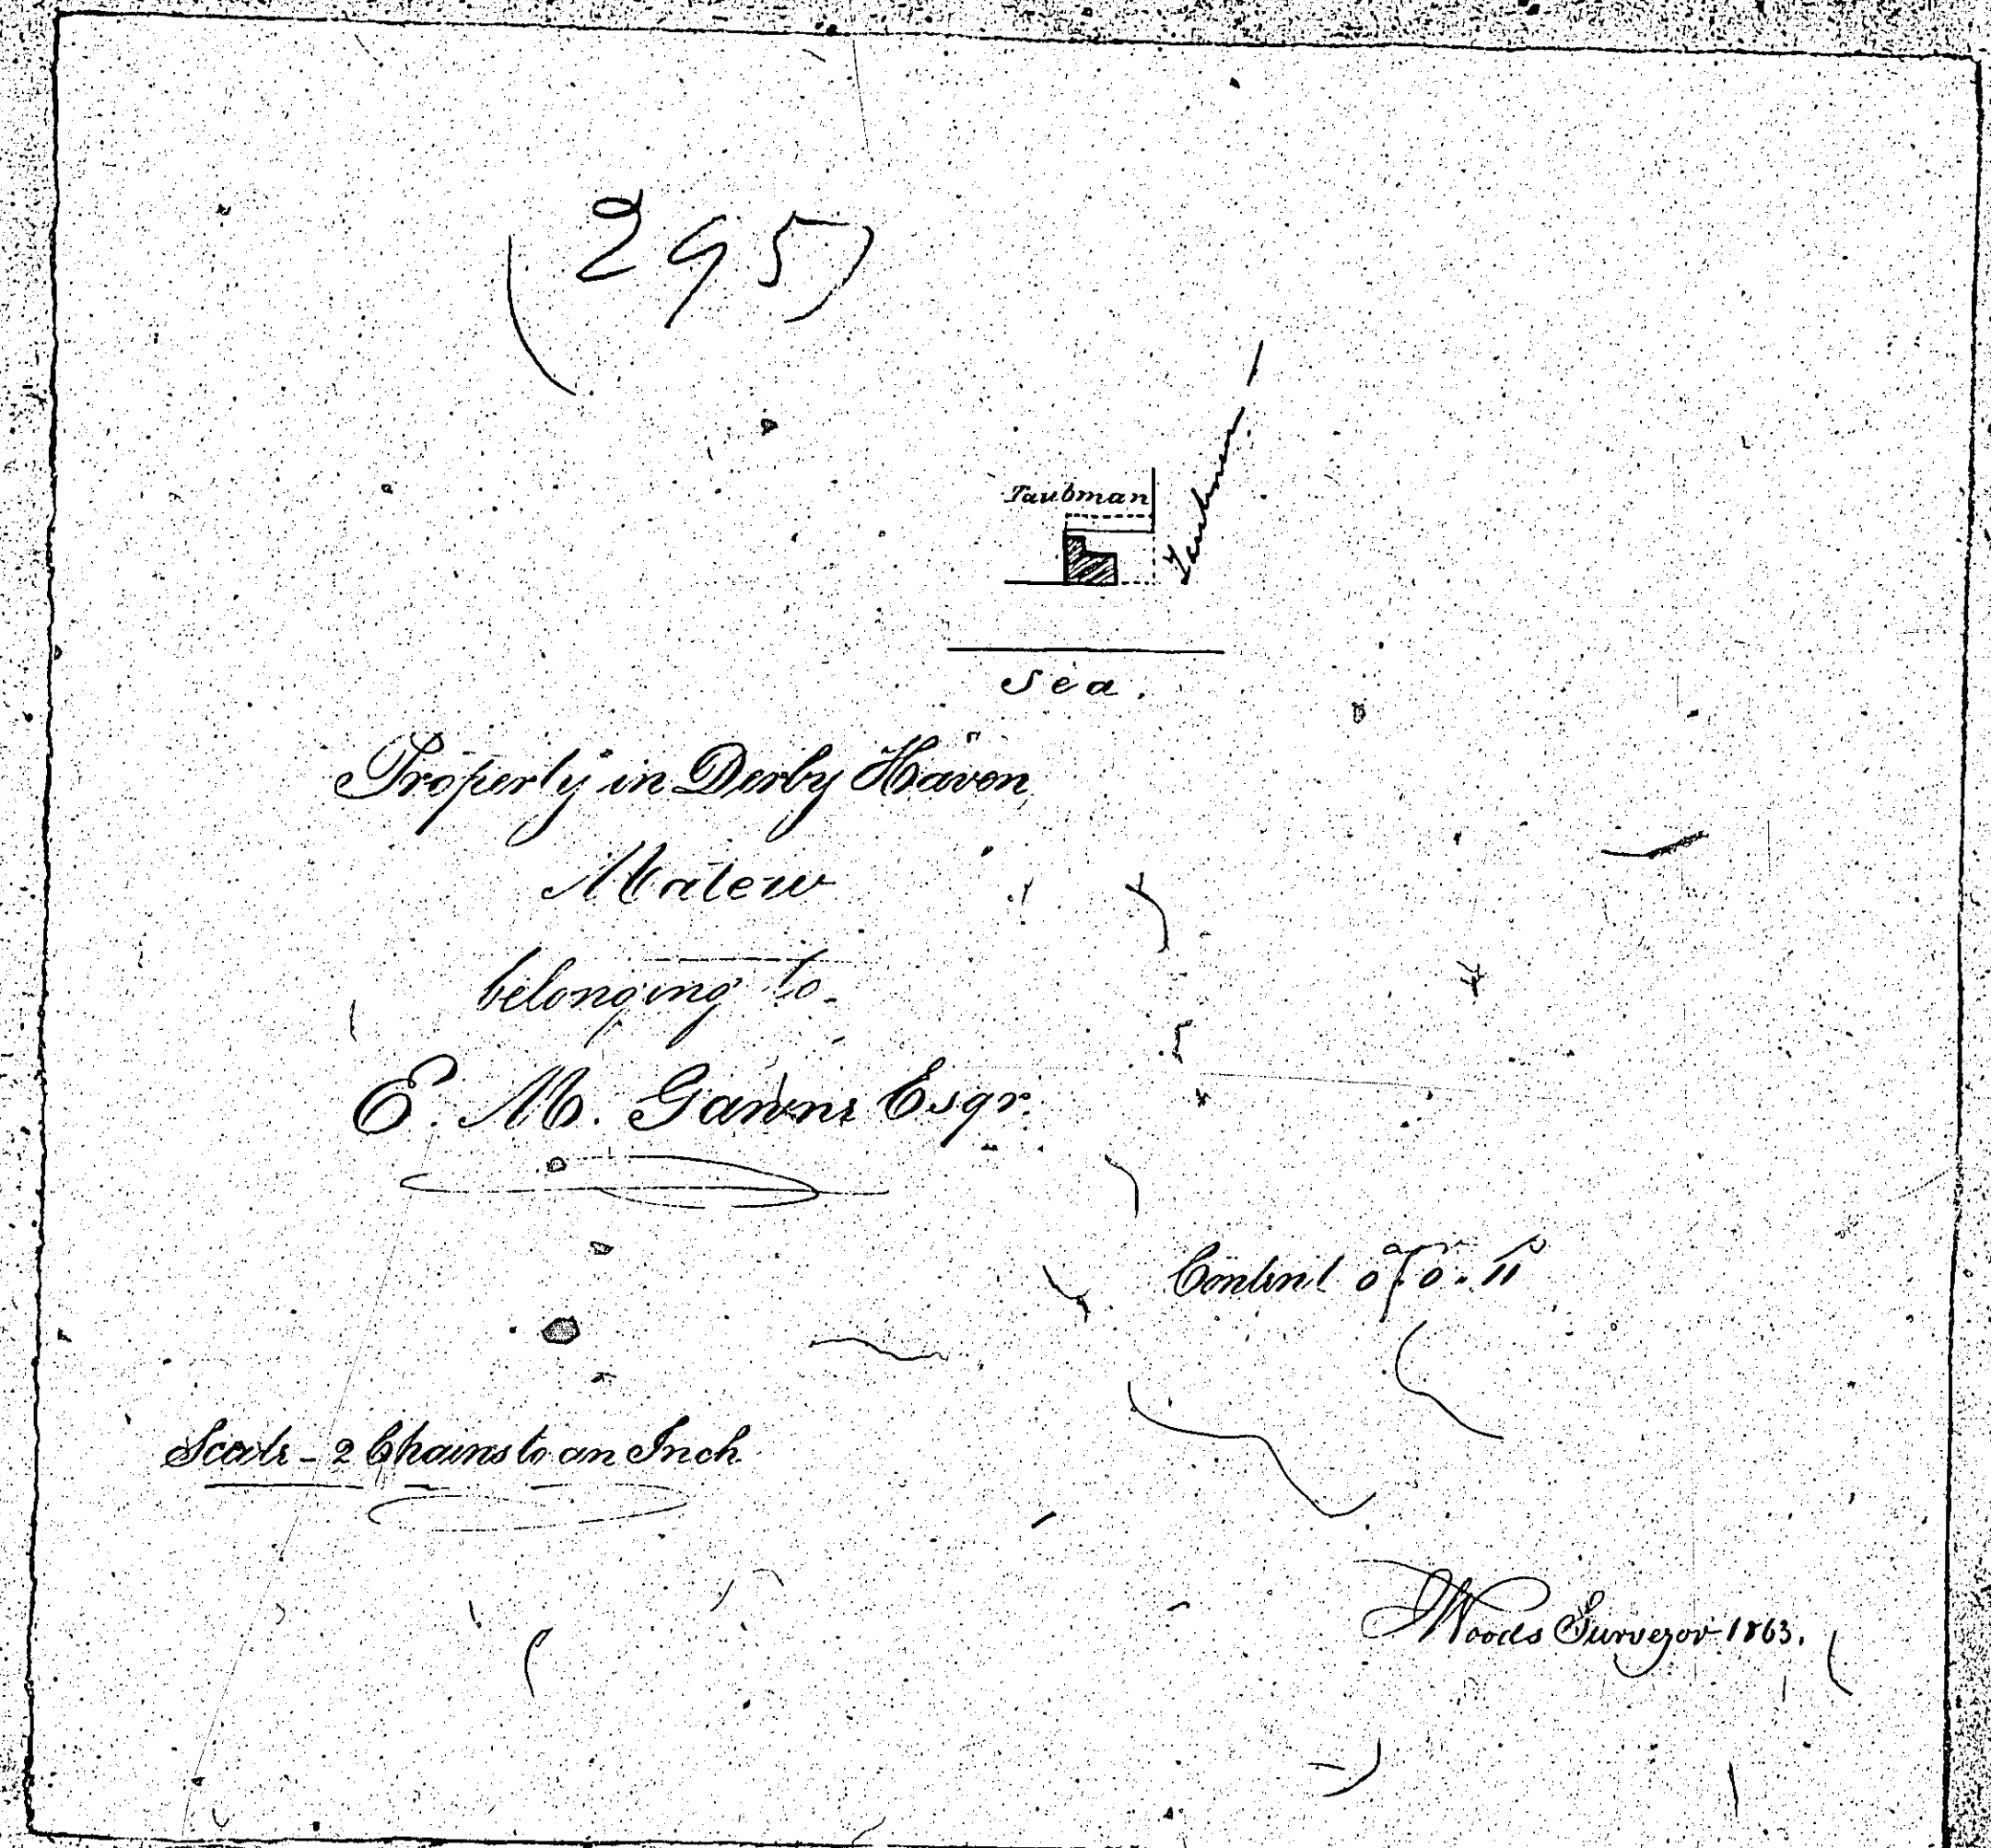 (295)
Taubman
Taubman
Sea.
Property in Derby Haven
Malew
belonging to
E. M. Gawne Esqr.
a r p
Content 0. 0. 11
Scale - 2 Chains to an Inch
Woods Surveyor 1863.